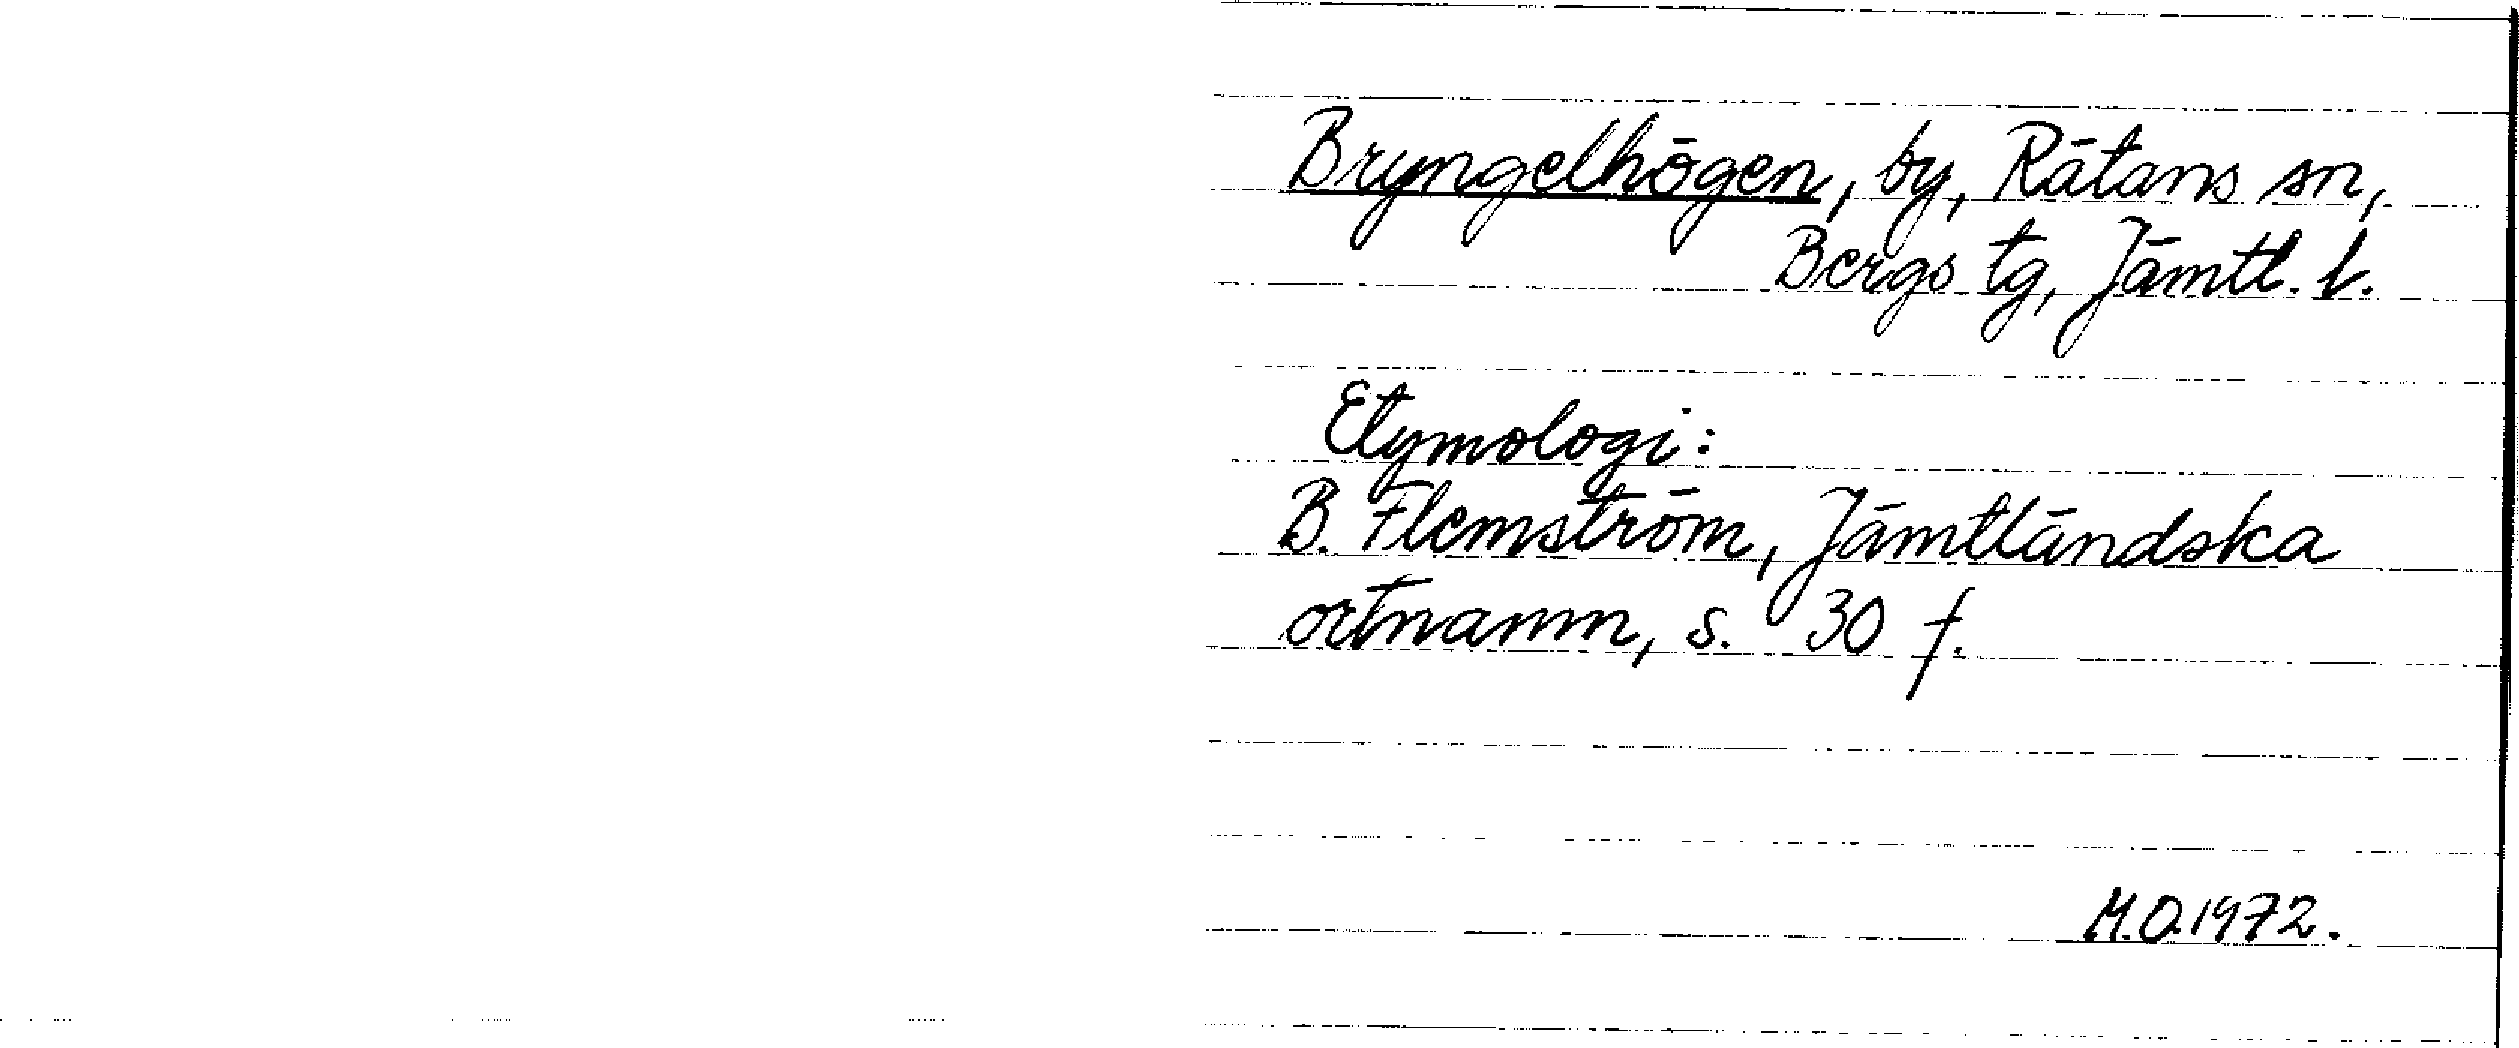 Bryngelhögen, by, Rätans sn,
Bergs tg, Jämtl. l.
Etymologi:
B. Flemström, Jämtländska
ortnamn, s. 30 f.
M.O.1972.